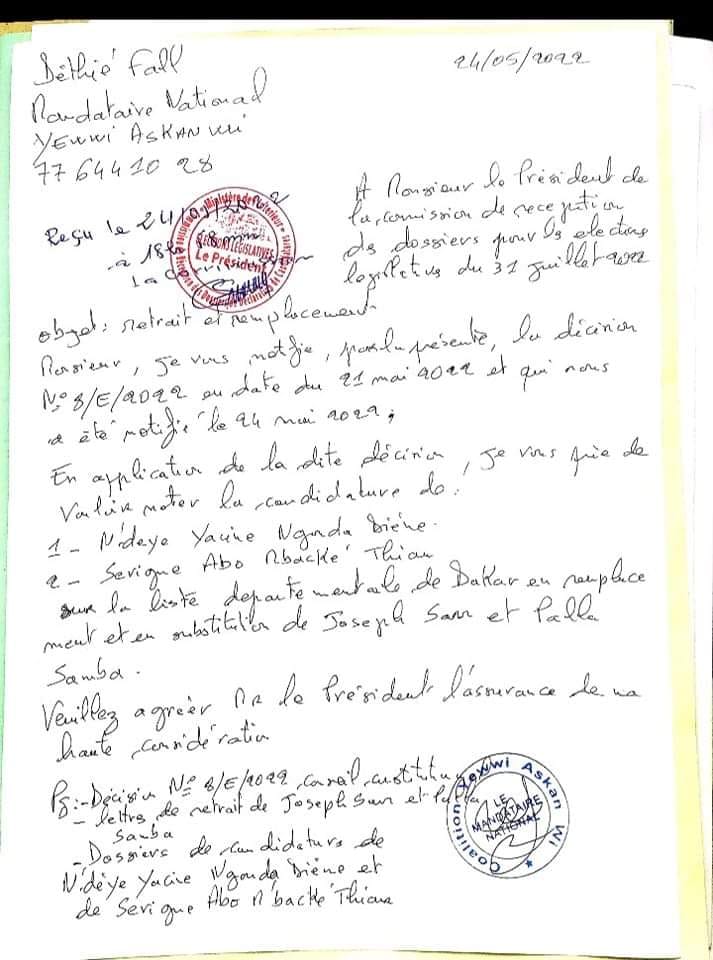 Déthié Fall
24/05/2022
Mandataire National
YEWWI ASKAN WI
77 644 10 28
A Monsieur le Président de
la commission de reception
des dossiers pour les elections
legislatives du 31 juillet 2022
Reçu le 24/05/2022
à 18h
Ministère de l'Interieur
ELECTIONS LEGISLATIVES
Le Président
objet: retrait et remplacement
Monsieur, je vous notifie, par la présente, la décision
N° 8/E/2022 en date du 21 mai 2022 et qui nous
a été notifié le 24 mai 2022;
En application de la dite décision, je vous prie de
Vouloir noter la candidature de:
1 - N'deye Yacine Ngonda Diène.
2 - Serigne Abo Mbacké Thiam
sur la liste departementale de Dakar en remplace
ment et en substitution de Joseph Sarr et Palla
Samba.
Veuillez agréer Mr le Président l'assurance de ma
haute considération
PJ:-Décision N° 8/E/2022 conseil constitutionnel
- lettres de retrait de Joseph Sarr et Palla
Samba
- Dossiers de candidature de
N'dèye Yacine Ngonda Diène et
de Sérigne Abo M'backé Thiam
Coalition Yewwi Askan Wi
LE
MANDATAIRE
NATIONAL